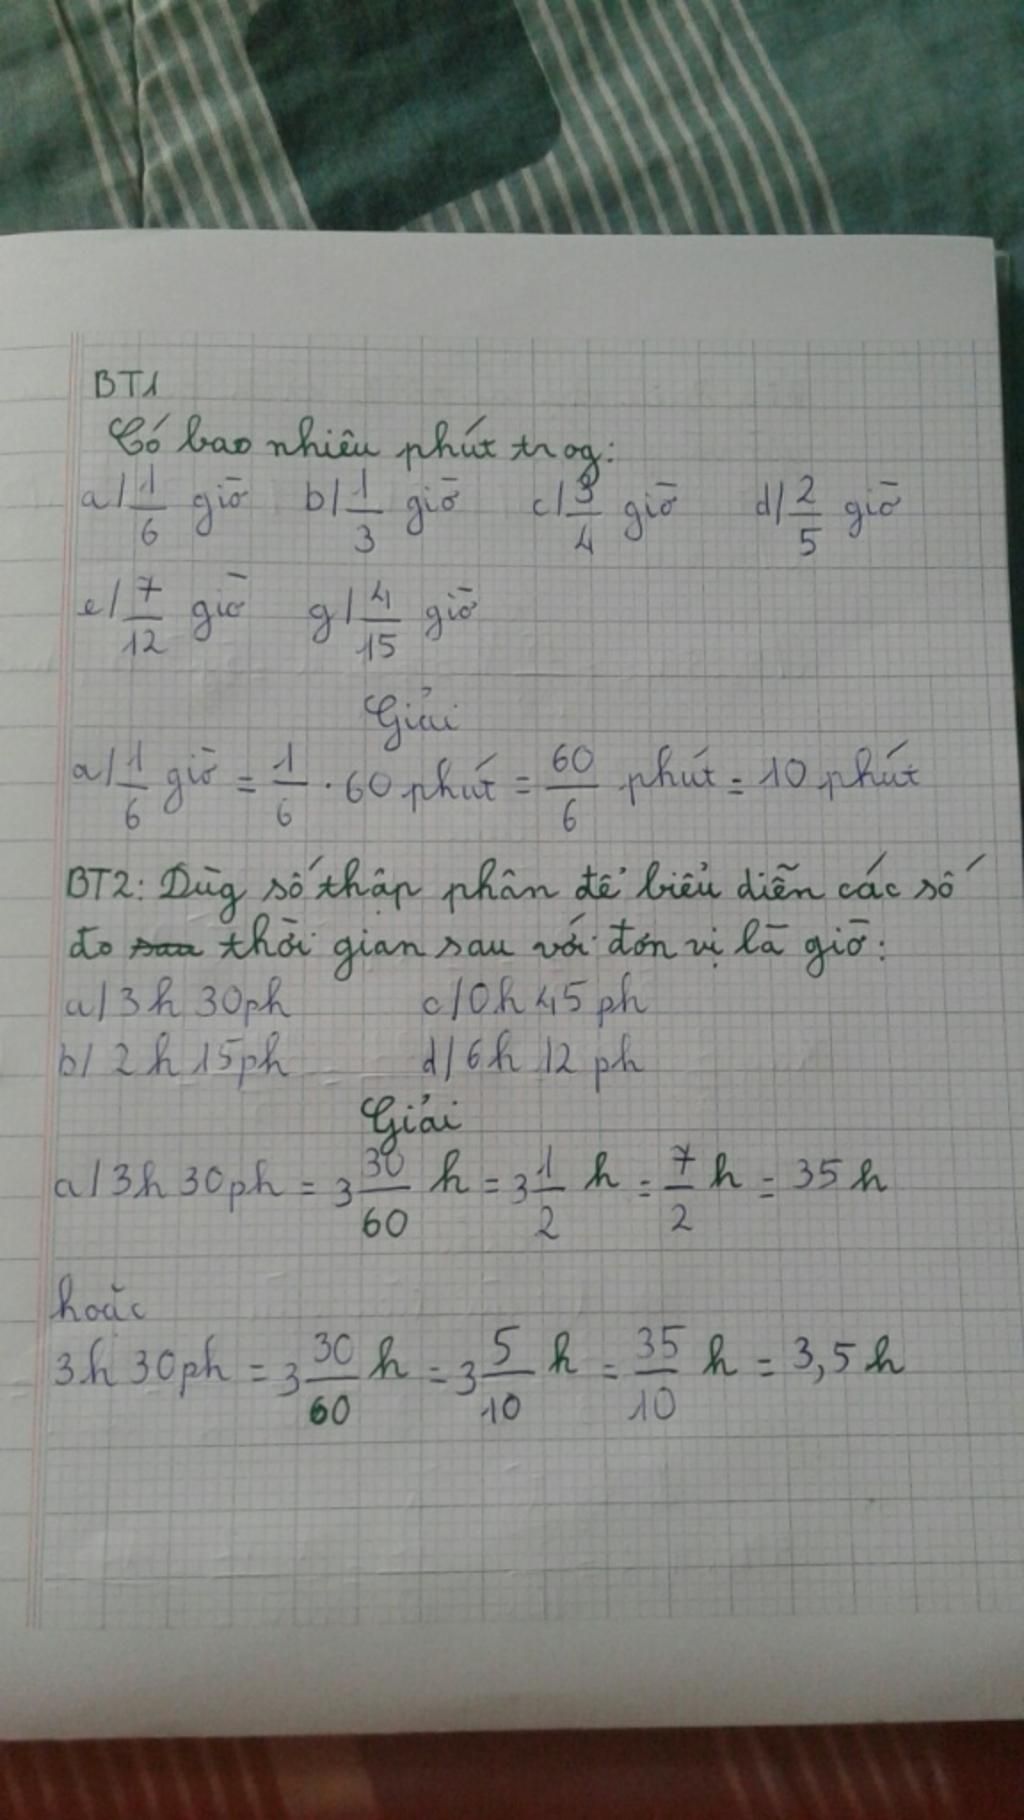 BT1
Có bao nhiêu phút trog:
a/ 1/6 giờ b/ 1/3 giờ c/ 3/4 giờ d/ 2/5 giờ
e/ 7/12 giờ g/ 4/15 giờ
Giải
a/ 1/6 giờ = 1/6 . 60 phút = 60/6 phút = 10 phút
BT2: Dùg số thập phân để biểu diễn các số
đo sau thời gian sau với đơn vị là giờ:
a/ 3h 30ph c/ 0h 45ph
b/ 2h 15ph d/ 6h 12 ph
Giải
a/ 3h 30ph = 3 30/60 h = 3 1/2 h = 7/2 h = 35 h
hoặc
3h 30ph = 3 30/60 h = 3 5/10 h = 35/10 h = 3,5 h